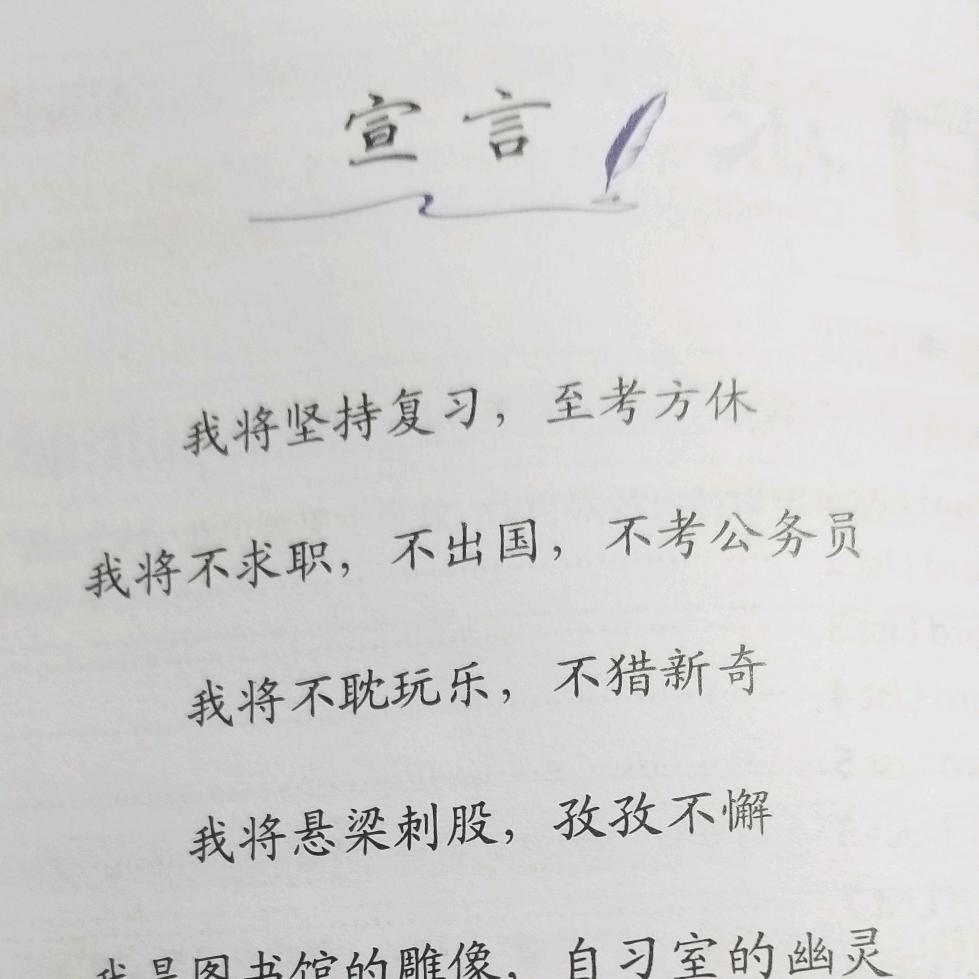 宣言
我将坚持复习，至考方休
我将不求职，不出国，不考公务员
我将不耽玩乐，不猎新奇
我将悬梁刺股，孜孜不懈
我是图书馆的雕像，自习室的幽灵